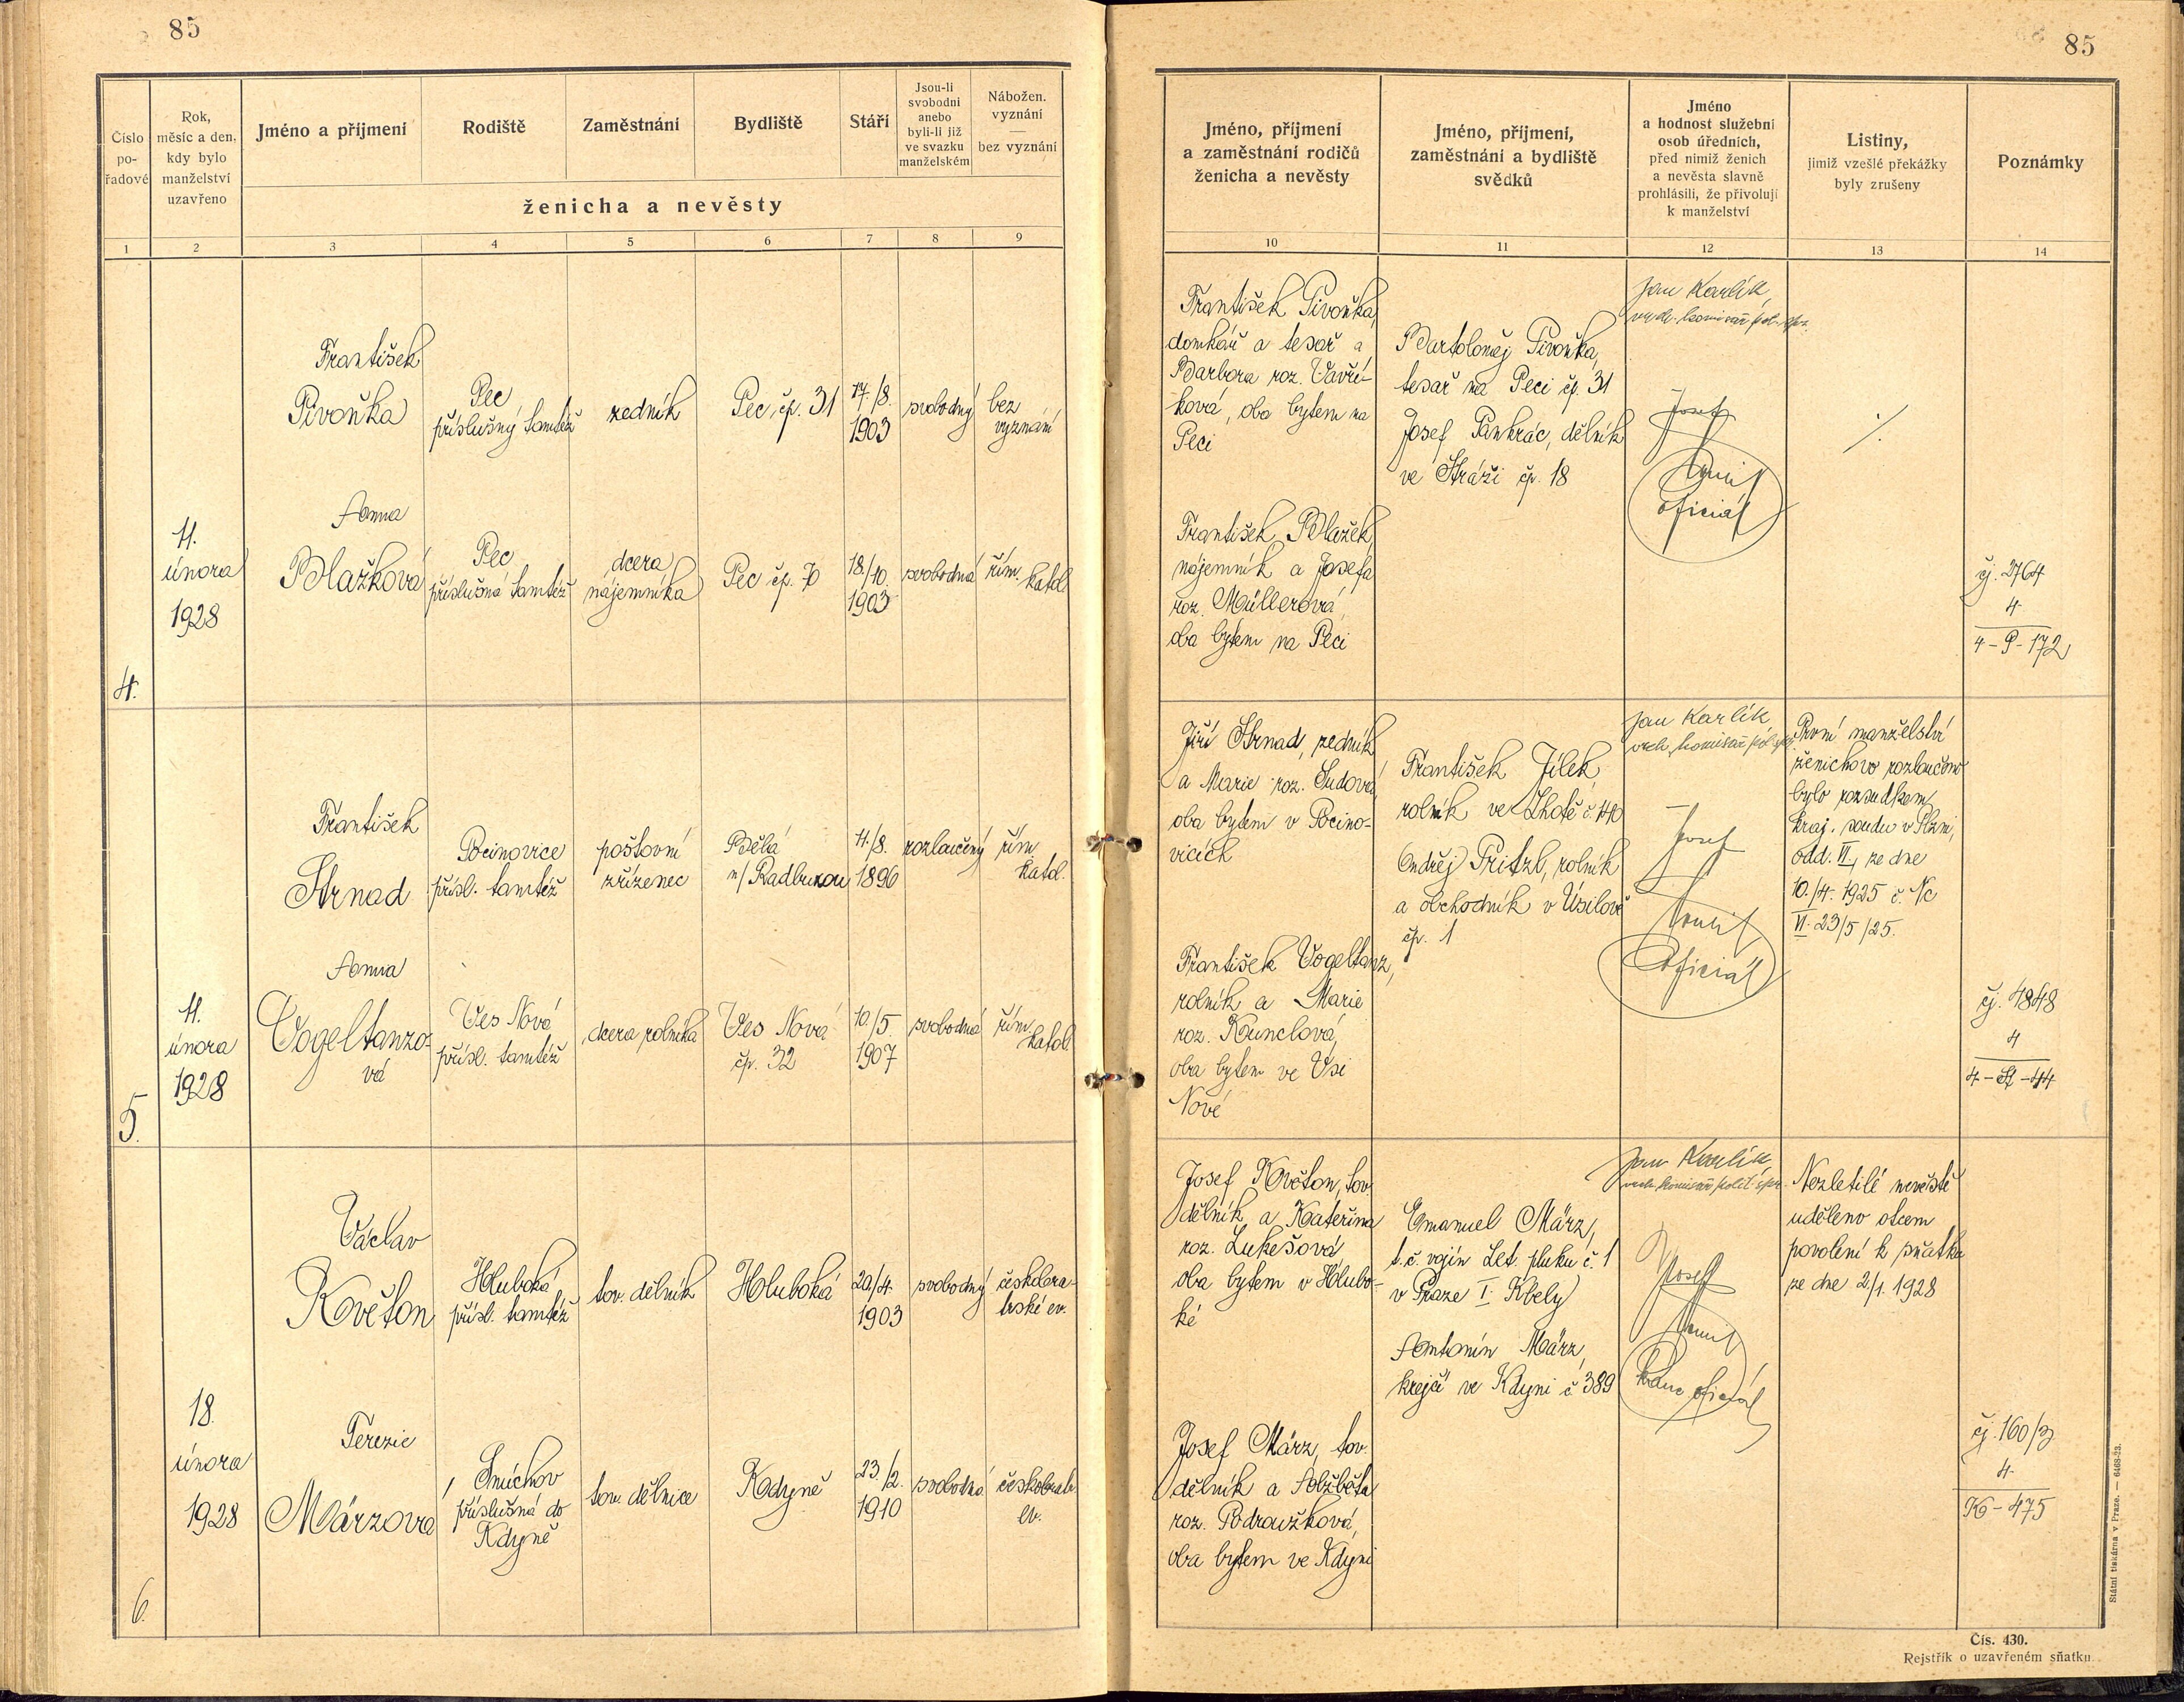 85
85
Číslo
po-
řadové
Rok,
měsíc a den,
kdy bylo
manželství
uzavřeno
Jméno a příjmení
Rodiště
Zaměstnání
Bydliště
Stáří
Jsou-li
svobodni
anebo
byli-li již
ve svazku
manželském
Nábožen.
vyznání
—
bez vyznání
ženicha a nevěsty
1
2
3
4
5
6
7
8
9
Jméno, příjmení
a zaměstnání rodičů
ženicha a nevěsty
Jméno, příjmení,
zaměstnání a bydliště
svědků
Jméno
a hodnost služební
osob úředních,
před nimiž ženich
a nevěsta slavně
prohlásili, že přivolují
k manželství
Listiny,
jimiž vzešlé překážky
byly zrušeny
Poznámky
10
11
12
13
14
4.
11.
února
1928
František
Pivoňka
Pec
příslušný tamtéž
zedník
Pec, čp. 31
17./8.
1903
svobodný
bez
vyznání
Anna
Blažková
Pec
příslušná tamtéž
dcera
nájemníka
Pec čp. 70
18./10.
1903
svobodná
řím.
katol.
František Pivoňka,
domkář a tesař a
Barbora roz. Vavří-
ková, oba bytem na
Peci
František Blažek,
nájemník a Josefa
roz. Müllerová,
oba bytem na Peci
Bartoloměj Pivoňka,
tesař na Peci čp. 31
Josef Pankrác, dělník
ve Stráži čp. 18
Jan Karlík,
vrch. komisař pol. spr.
Josef
oficiál
./.
čj. 2764
4
4-P-172
5.
11.
února
1928
František
Strnad
Pocinovice
přísl. tamtéž
poštovní
zřízenec
Bělá
n/Radbuzou
11./8.
1896
rozloučený
řím.
katol.
Anna
Vogeltanzo-
vá
Ves Nová
přísl. tamtéž
dcera rolníka
Ves Nová
čp. 32
10./5.
1907
svobodná
řím.
katol.
Jiří Strnad, zedník
a Marie roz. Sudová,
oba bytem v Pocino-
vicích
František Vogeltanz,
rolník a Marie
roz. Kunclová,
oba bytem ve Vsi
Nové
František Jílek,
rolník ve Lhotě č. 110
Ondřej Pritzl, rolník
a obchodník v Úsilově
čp. 1
Jan Karlík,
vrch. komisař pol. spr.
Josef
oficiál
První manželství
ženichovo rozloučeno
bylo rozsudkem
kraj. soudu v Plzni,
odd. VI., ze dne
10./4. 1925 č. Nc
VI. 23/5/25.
čj. 4848
4
4-St-44
6.
18.
února
1928
Václav
Květon
Hluboká
přísl. tamtéž
tov. dělník
Hluboká
20/4.
1903
svobodný
českobra-
trské ev.
Terezie
Märzová
Smíchov
příslušná do
Kdyně
tov. dělnice
Kdyně
23./2.
1910
svobodná
českobratr.
ev.
Josef Květon, tov.
dělník a Kateřina
roz. Lukešová,
oba bytem v Hlubo-
ké
Josef März, tov.
dělník a Alžběta
roz. Podroužková,
oba bytem ve Kdyni
Emanuel März,
t. č. vojín Let. pluku č. 1
v Praze I. Kbely
Antonín März,
krejčí ve Kdyni č 389
Jan Karlík,
vrch. komisař polit. spr.
Josef
kanc. oficiál
Nezletilé nevěstě
uděleno otcem
povolení k sňatku
ze dne 2/1. 1928
čj. 160/3
4
K-475
Státní tiskárna v Praze. — 6468-23.
Čís. 430.
Rejstřík o uzavřeném sňatku